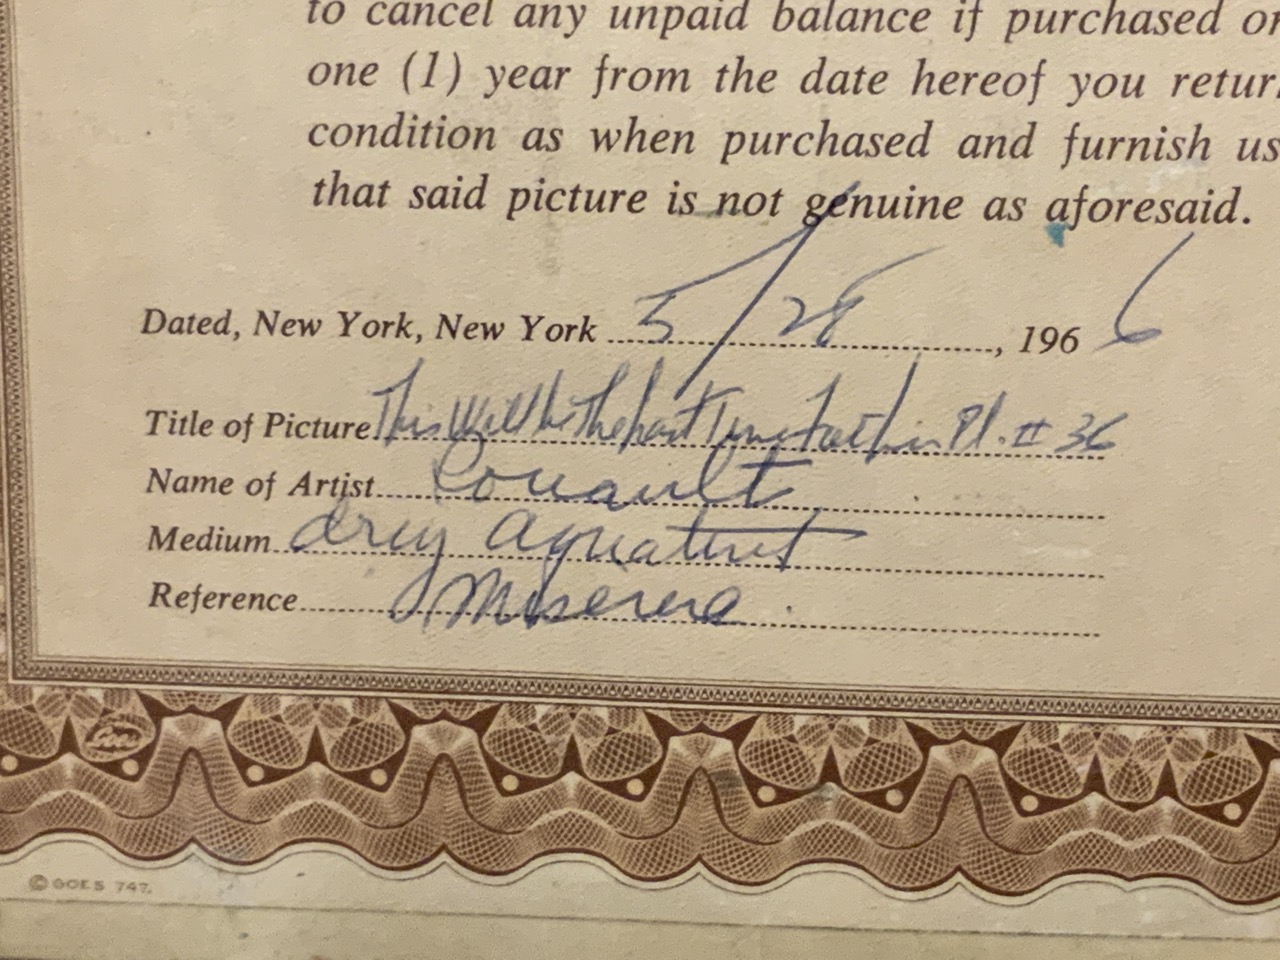 to cancel any unpaid balance if purchased or
one (1) year from the date hereof you return
condition as when purchased and furnish us
that said picture is not genuine as aforesaid.
Dated, New York, New York 5/28, 1966
Title of Picture This Will be The Last Time Father Pl. # 36
Name of Artist Rouault
Medium drey aquatint
Reference Miserere
© GOES 747.
Goes